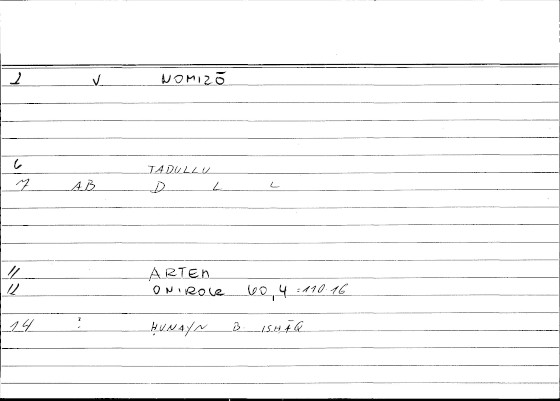 1 V NOMIZŌ
6 TADULLU
7 AB D L L
11 ARTEM
12 ONIROCR 60,4 = 110.16
14 : ḤUNAYN B ISḤĀQ